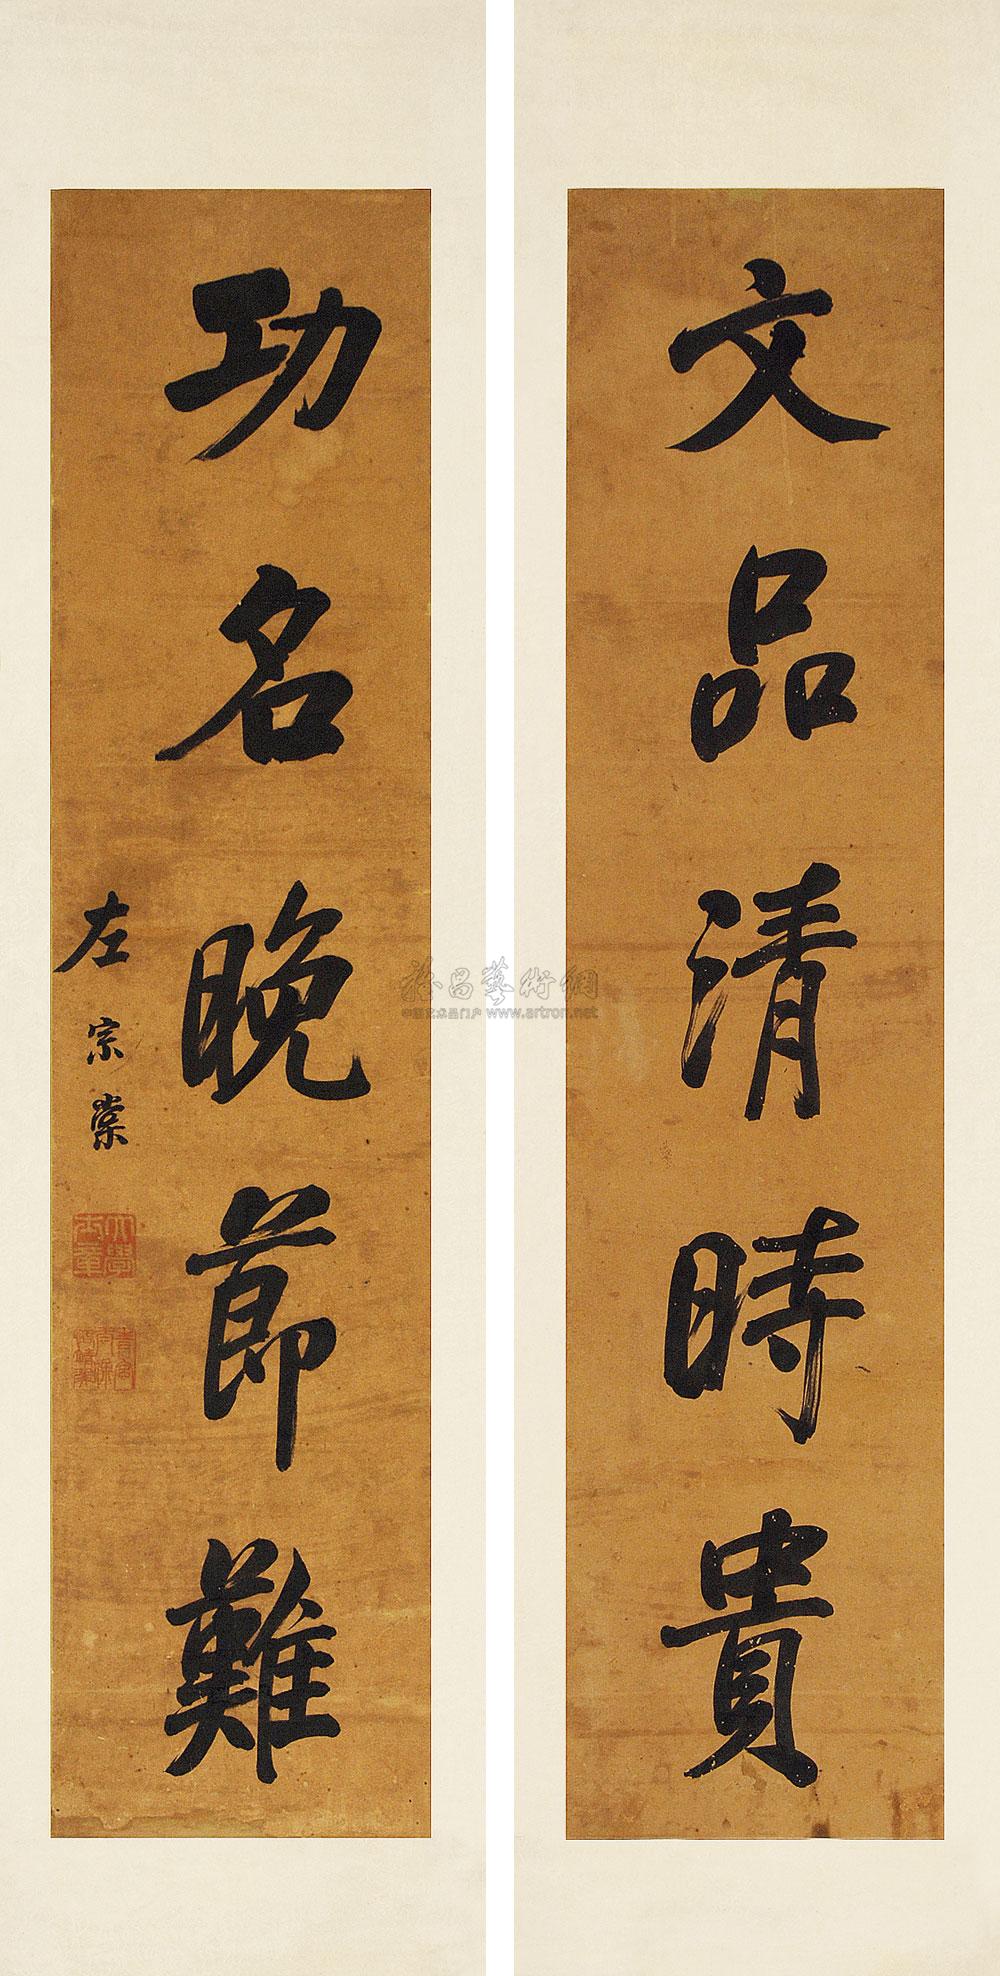 文品清時貴
功名晚節難
左宗棠
雅昌藝術網
中国艺术品门户 www.artron.net